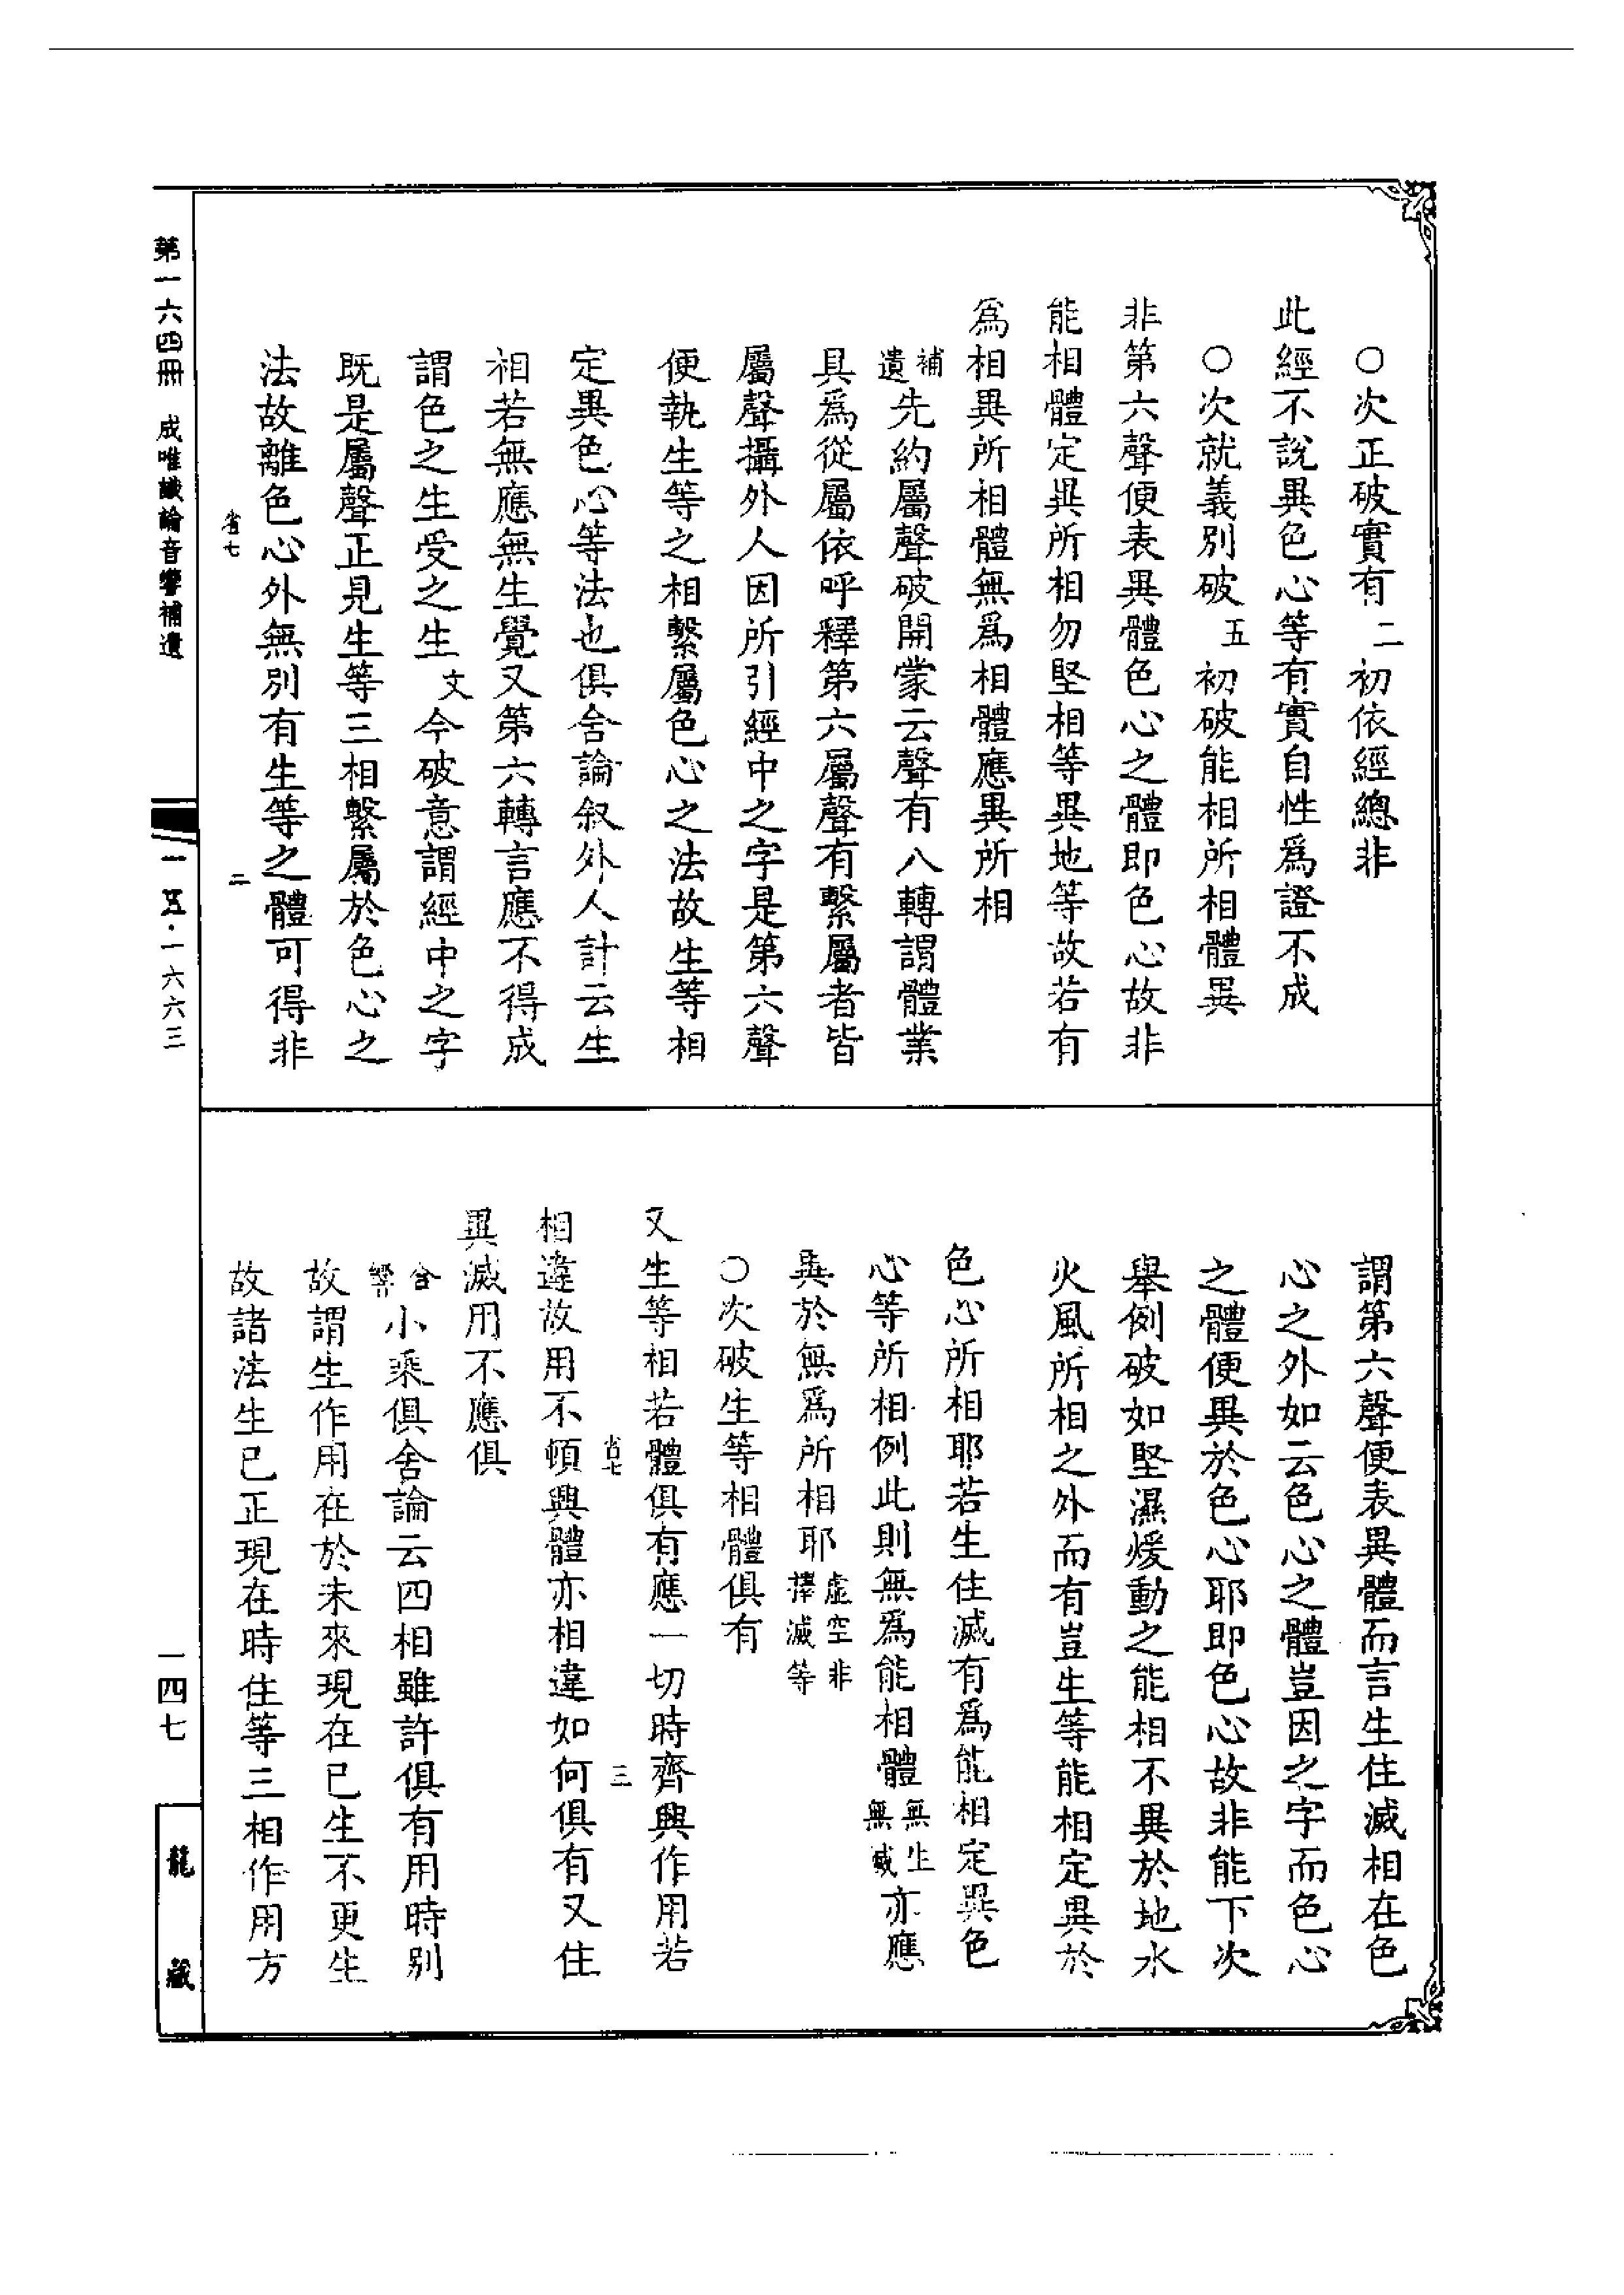 ○次正破實有二初依經總非
此經不說異色心等有實自性爲證不成
○次就義別破五初破能相所相體異
非第六聲便表異體色心之體即色心故非
能相體定異所相勿堅相等異地等故若有
爲相異所相體無爲相體應異所相
補遺先約屬聲破開蒙云聲有八轉謂體業
具爲從屬依呼釋第六屬聲有繫屬者皆
屬聲攝外人因所引經中之字是第六聲
便執生等之相繫屬色心之法故生等相
定異色心等法也俱舍論叙外人計云生
相若無應無生覺又第六轉言應不得成
謂色之生受之生文今破意謂經中之字
既是屬聲正見生等三相繫屬於色心之
法故離色心外無別有生等之體可得非
省七 二
謂第六聲便表異體而言生住滅相在色
心之外如云色心之體豈因之字而色心
之體便異於色心耶即色心故非能下次
舉例破如堅濕煖動之能相不異於地水
火風所相之外而有豈生等能相定異於
色心所相耶若生住滅有爲能相定異色
心等所相例此則無爲能相體無生無滅亦應
異於無爲所相耶虛空非擇滅等
○次破生等相體俱有
又生等相若體俱有應一切時齊興作用若
省七 三
相違故用不頓興體亦相違如何俱有又住
異滅用不應俱
合響小乘俱舍論云四相雖許俱有用時別
故謂生作用在於未來現在已生不更生
故諸法生已正現在時住等三相作用方
第一六四冊 成唯識論音響補遺
一五·一六六三
一四七
龍藏